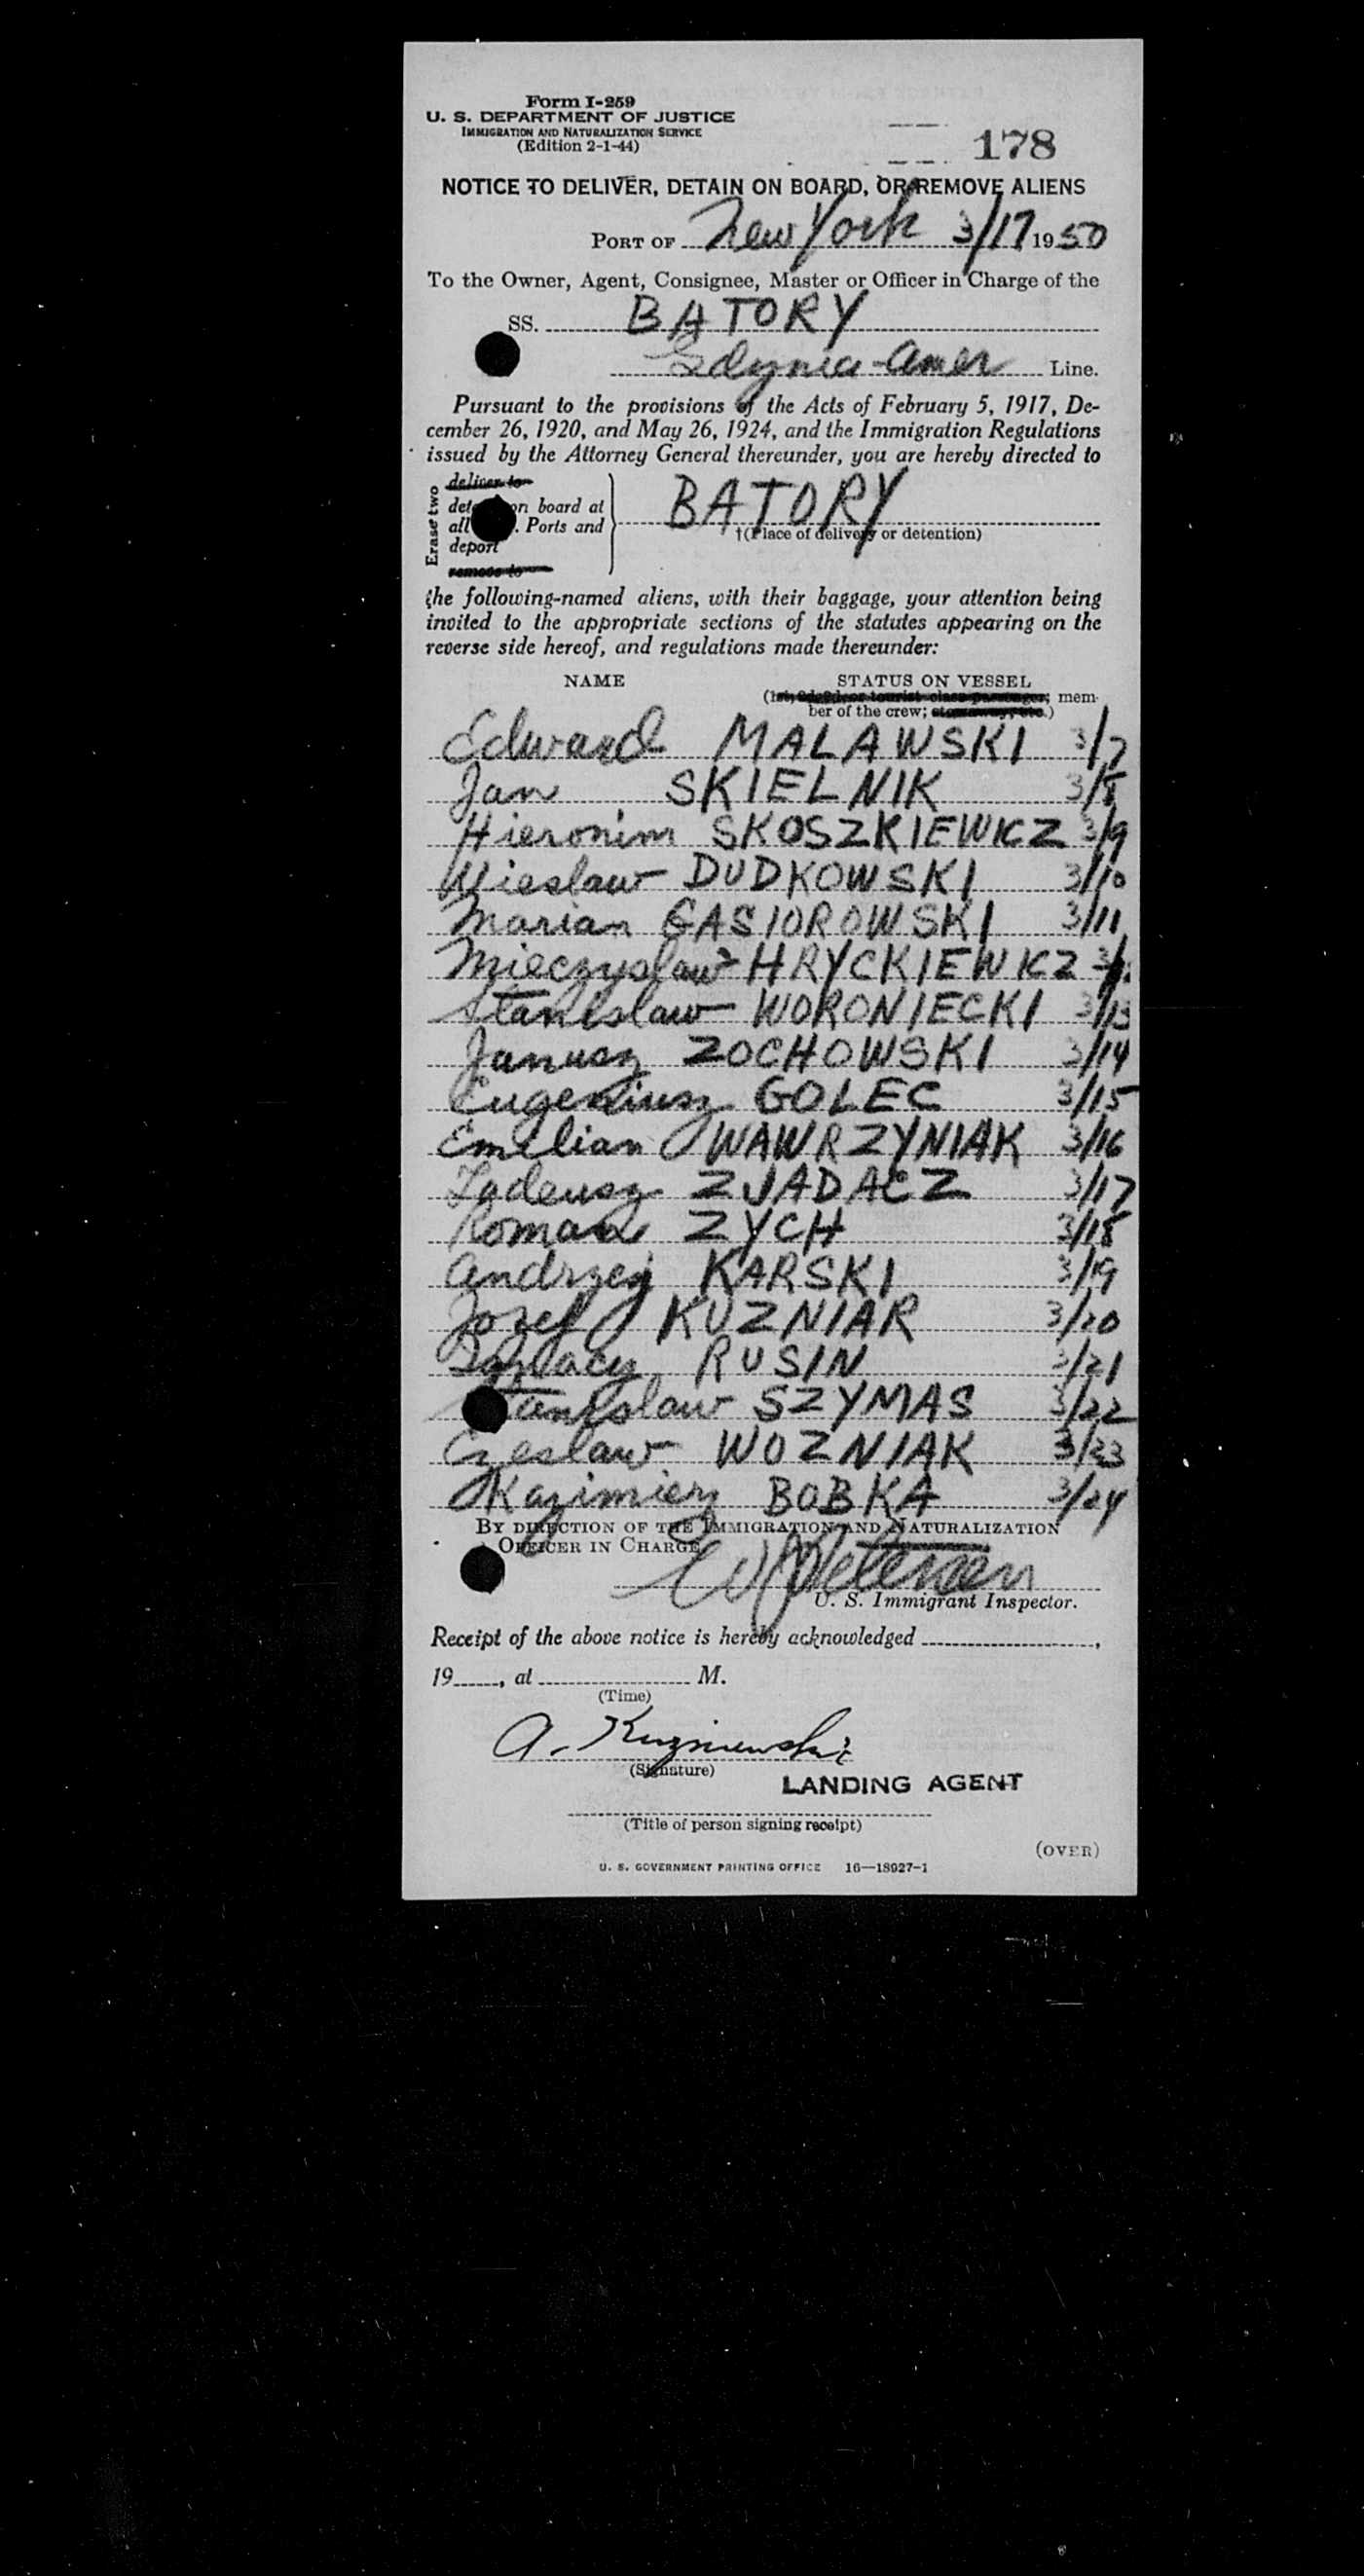 Form I-259
U. S. DEPARTMENT OF JUSTICE
IMMIGRATION AND NATURALIZATION SERVICE
(Edition 2-1-44)
178
NOTICE TO DELIVER, DETAIN ON BOARD, OR REMOVE ALIENS
PORT OF New York 3/17 1950
To the Owner, Agent, Consignee, Master or Officer in Charge of the
SS. BATORY
Gdynia-Amer Line.
Pursuant to the provisions of the Acts of February 5, 1917, De-
cember 26, 1920, and May 26, 1924, and the Immigration Regulations
issued by the Attorney General thereunder, you are hereby directed to
Erase two
deliver to
on board at
all Ports and
deport
remove to
BATORY
†(Place of delivery or detention)
the following-named aliens, with their baggage, your attention being
invited to the appropriate sections of the statutes appearing on the
reverse side hereof, and regulations made thereunder:
NAME STATUS ON VESSEL
(1st, 2d, 3d, or tourist class passenger; mem-
ber of the crew; stowaway, etc.)
Edward MALAWSKI 3/7
Jan SKIELNIK 3/8
Hieronim SKOSZKIEWICZ 3/9
Wieslaw DUDKOWSKI 3/10
Marian GASIOROWSKI 3/11
Mieczyslaw HRYCKIEWICZ
Stanislaw WORONIECKI 3/13
Janusz ZOCHOWSKI 3/14
Eugeniusz GOLEC 3/15
Emilian WAWRZYNIAK 3/16
Tadeusz ZJADACZ 3/17
Roman ZYCH 3/18
Andrzej KARSKI 3/19
Jozef KUZNIAR 3/20
Ignacy RUSIN 3/21
Stanislaw SZYMAS 3/22
Czeslaw WOZNIAK 3/23
Kazimierz BOBKA 3/24
BY DIRECTION OF THE IMMIGRATION AND NATURALIZATION
OFFICER IN CHARGE
Petersen
U. S. Immigrant Inspector.
Receipt of the above notice is hereby acknowledged ,
19 , at M.
(Time)
A. Kuzniewski
(Signature)
LANDING AGENT
(Title of person signing receipt)
(OVER)
U. S. GOVERNMENT PRINTING OFFICE 16—18927-1